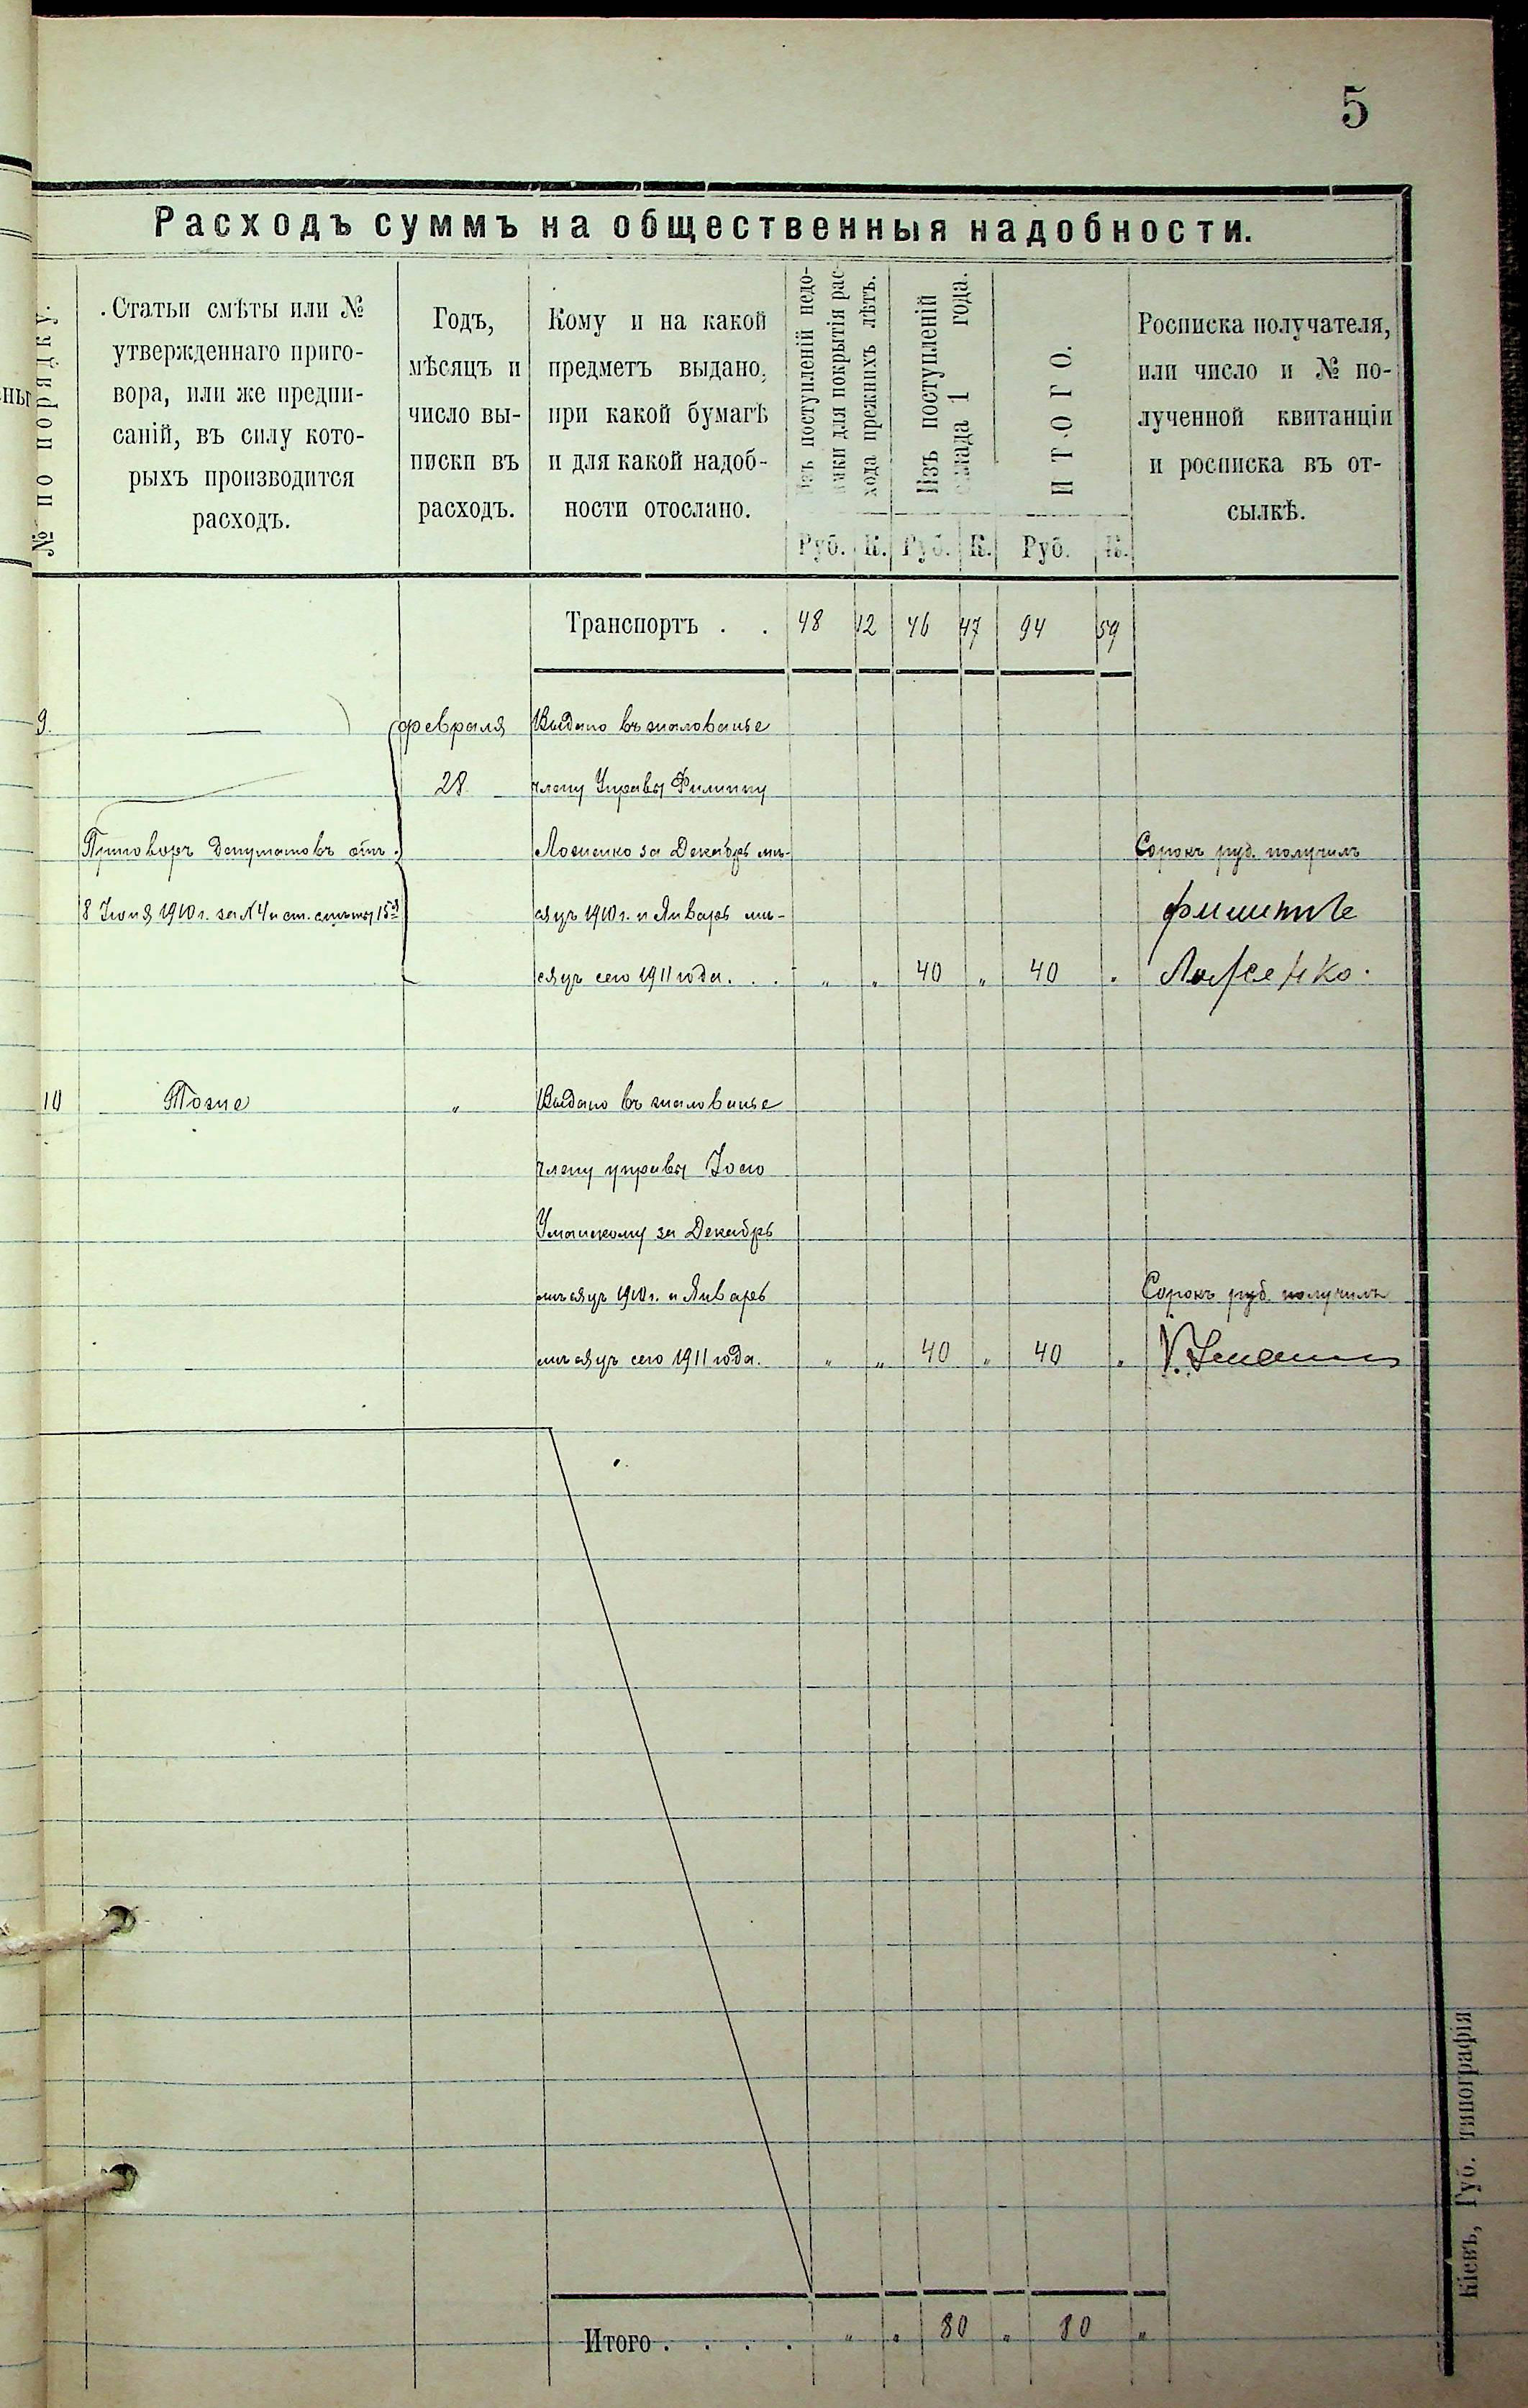 5
Расходъ суммъ на общественныя надобности.
№ по порядку.
Статьи смѣты или №
утвержденнаго приго-
вора, или же предпи-
саній, въ силу кото-
рыхъ производится
расходъ.
Годъ,
мѣсяцъ и
число вы-
писки въ
расходъ.
Кому и на какой
предметъ выдано,
при какой бумагѣ
и для какой надоб-
ности отослано.
Изъ поступленій недо-
имки для покрытія рас-
хода прежнихъ лѣтъ.
Изъ поступленій
оклада 1 года.
ИТОГО.
Росписка получателя,
или число и № по-
лученной квитанціи
и росписка въ от-
сылкѣ.
Руб. К. Руб. К. Руб. К.
Транспортъ . . 48 12 46 47 94 59
9. февраля Выдано въ жалованье
28 члену Управы Филиппу
Приговоръ депутатовъ отъ Ложенко за Декабрь мѣ- Сорокъ руб. получилъ
8 Іюня 1910 г. за №4 и ст. смѣты 15й сяцъ 1910 г. и Январь мѣ- Филиппъ
сяцъ сего 1911 года. . . " " 40 " 40 " Ложенко.
10 Тоже " Выдано въ жалованье
члену управы
Уманскому за Декабрь
мѣсяцъ 1910 г. и Январь Сорокъ руб. получилъ
мѣсяцъ сего 1911 года. " " 40 " 40 "
Итого . . . . " " 80 " 80 "
Кіевъ, Губ. типографія